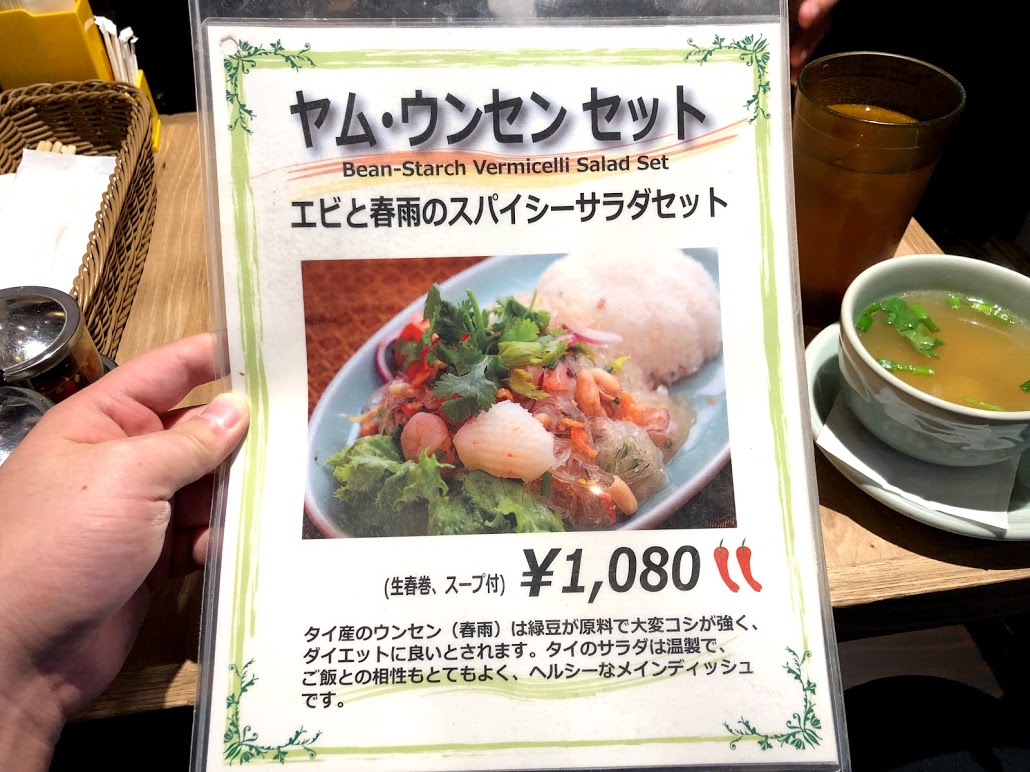 ヤム・ウンセン セット
Bean-Starch Vermicelli Salad Set
エビと春雨のスパイシーサラダセット
(生春巻、スープ付) ¥1,080
タイ産のウンセン（春雨）は緑豆が原料で大変コシが強く、
ダイエットに良いとされます。タイのサラダは温製で、
ご飯との相性もとてもよく、ヘルシーなメインディッシュ
です。